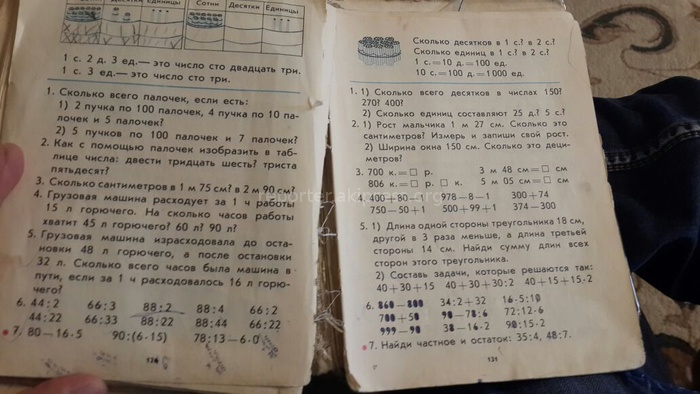 Десятки Единицы
Сотни Десятки Единицы
1 с. 2 д. 3 ед.— это число сто двадцать три.
1 с. 3 ед.— это число сто три.
1. Сколько всего палочек, если есть:
1) 2 пучка по 100 палочек, 4 пучка по 10 па-
лочек и 5 палочек?
2) 5 пучков по 100 палочек и 7 палочек?
2. Как с помощью палочек изобразить в таб-
лице числа: двести тридцать шесть? триста
пятьдесят?
3. Сколько сантиметров в 1 м 75 см? в 2 м 90 см?
4. Грузовая машина расходует за 1 ч работы
15 л горючего. На сколько часов работы
хватит 45 л горючего? 60 л? 90 л?
5. Грузовая машина израсходовала до оста-
новки 48 л горючего, а после остановки
32 л. Сколько всего часов была машина в
пути, если за 1 ч расходовалось 16 л горю-
чего?
6. 44:2 66:3 88:2 88:4 66:2
44:22 66:33 88:22 88:44 66:22
7. 80—16·5 90:(6·15) 78:13—6·0
Сколько десятков в 1 с.? в 2 с.?
Сколько единиц в 1 с.? в 2 с.?
1 с.=10 д.=100 ед.
10 с.=100 д.=1000 ед.
1. 1) Сколько всего десятков в числах 150?
270? 400?
2) Сколько единиц составляют 25 д.? 5 с.?
2. 1) Рост мальчика 1 м 27 см. Сколько это
сантиметров? Измерь и запиши свой рост.
2) Ширина окна 150 см. Сколько это деци-
метров?
3. 700 к.=□ р. 3 м 48 см=□ см
806 к.=□ р. □ к. 5 м 05 см=□ см
4. 400+80 978—8—1 300+74
750—50+1 500+99+1 374—300
5. 1) Длина одной стороны треугольника 18 см,
другой в 3 раза меньше, а длина третьей
стороны 14 см. Найди сумму длин всех
сторон этого треугольника.
2) Составь задачи, которые решаются так:
40+30+15 40+30+30·2 40+15+15·2
6. 860—800 34:2+32 16·5:10
700+50 90—78:6 72:12·6
999—90 38—16·2 90:15·2
7. Найди частное и остаток: 35:4, 48:7.
131